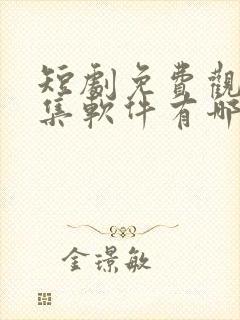 短劇免費觀
集軟件有哪
金璟敏